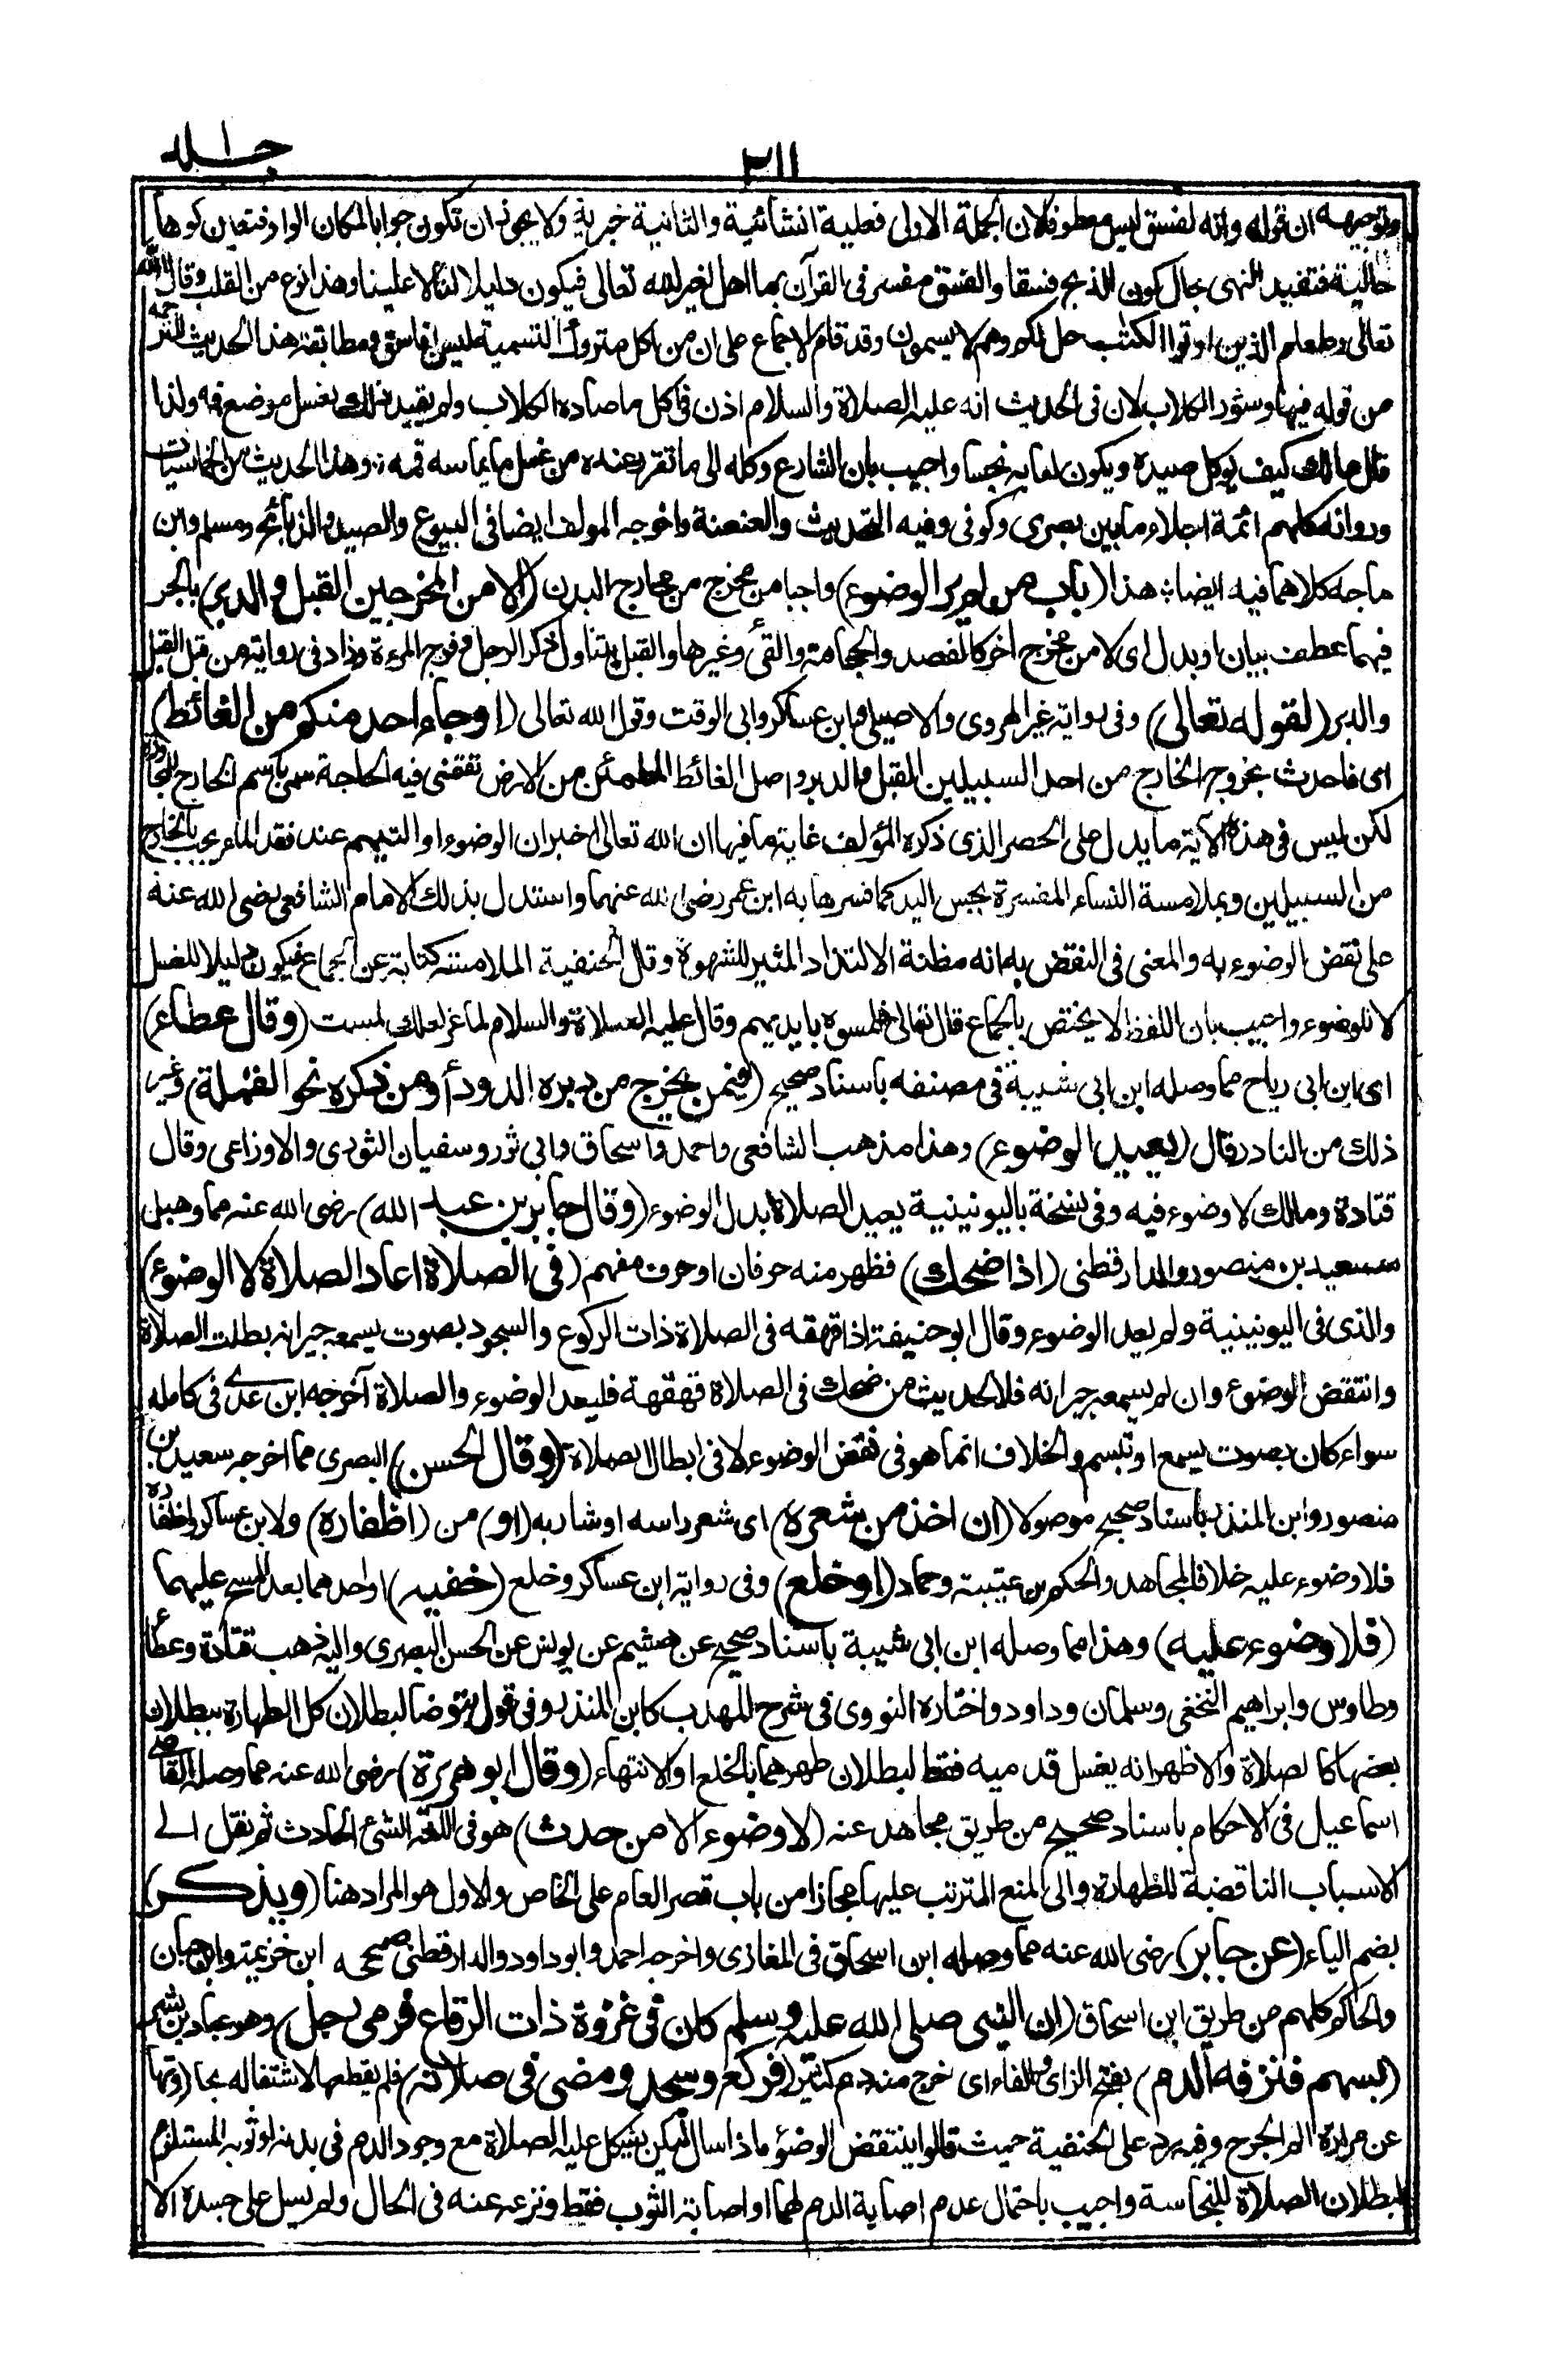 ٢١١
جلد ١
وتوجيهه ان قوله وانه لفسق ليس معطوفا لان الجملة الاولى فعلية انشائية والثانية خبرية ولا يجوز ان تكون جوابا لمكان الواو فتعين كونها
حالية فتقييد النهى بحال كون الذبح فسقا والفسق مفسر فى القرآن بما اهل لغير الله تعالى فيكون دليلا لنا لا علينا وهذا نوع من القلب وقال الله
تعالى وطعام الذين اوتوا الكتٰب حل لكم وهم لا يسمون وقد قام الاجماع على ان من اكل متروك التسمية ليس بفاسق ومطابقة هذا الحديث للترجمة
من قوله فيها وسؤر الكلاب لان فى الحديث انه عليه الصلاة والسلام اذن فى اكل ما صاده الكلاب ولم يقيد ذلك بغسل موضع فمه ولذا
قال مالك كيف يوكل صيده ويكون لعابه نجسا واجيب بان الشارع وكله الى ما تقرر عنده من غسل ما يماسه فمه وهذا الحديث من الخماسيات
ورواته كلهم ائمة اجلاء ما بين بصرى وكوفى وفيه التحديث والعنعنة واخرجه المولف ايضا فى البيوع والصيد والذبائح ومسلم وابن
ماجه كلاهما فيه ايضا هذا (باب من لم ير الوضوء) واجبا من مخرج من مخارج البدن (الا من المخرجين القبل والدبر) بالجر
فيهما عطف بيان او بدل اى لا من مخرج اخر كالفصد والحجامة والقئ وغيرها والقبل يتناول ذكر الرجل وفرج المرءة وزاد فى رواية من قبل القبل
والدبر (لقوله تعالى) وفى رواية غير الهروى والاصيلى وابن عساكر وابى الوقت وقول الله تعالى (او جاء احد منكم من الغائط)
اى فاحدث بخروج الخارج من احد السبيلين القبل والدبر واصل الغائط المطمئن من الارض تقضى فيه الحاجة سمى باسم الخارج للمجاورة
لكن ليس فى هذه الآية ما يدل على الحصر الذى ذكره المؤلف غاية ما فيها ان الله تعالى اخبر ان الوضوء او التيمم عند فقد الماء يجب بالخارج
من السبيلين وبملامسة النساء المفسرة بجس اليد كما فسرها به ابن عمر رضى الله عنهما واستدل بذلك الامام الشافعى رضى الله عنه
على نقض الوضوء به والمعنى فى النقض به انه مظنة الالتذاذ المثير للشهوة وقال الحنفية الملامسة كناية عن الجماع فيكون دليلا للغسل
لا للوضوء واجيب بان اللفظ لا يختص بالجماع قال تعالى فلمسوه بايديهم وقال عليه الصلاة والسلام لماعز لعلك لمست (وقال عطاء)
اى ابن ابى رباح مما وصله ابن ابى شيبة فى مصنفه باسناد صحيح (فيمن يخرج من دبره الدود أو من ذكره نحو القملة) وغير
ذلك من النادر قال (يعيد الوضوء) وهذا مذهب الشافعى واحمد واسحاق وابى ثور وسفيان الثورى والاوزاعى وقال
قتادة ومالك لا وضوء فيه وفى نسخة باليونينية يعيد الصلاة بدل الوضوء (وقال جابر بن عبد الله) رضى الله عنه مما وصله
سعيد بن منصور والدارقطنى (اذا ضحك) فظهر منه حرفان او حرف مفهم (فى الصلاة اعاد الصلاة لا الوضوء)
والذى فى اليونينية ولم يعد الوضوء وقال ابو حنيفة اذا قهقه فى الصلاة ذات الركوع والسجود بصوت يسمعه جيرانه بطلت الصلاة
وانتقض الوضوء وان لم يسمعه جيرانه فلا لحديث من ضحك فى الصلاة قهقهة فليعد الوضوء والصلاة اخرجه ابن عدى فى كامله
سواء كان بصوت يسمع او تبسم والخلاف انما هو فى نقض الوضوء لا فى ابطال الصلاة (وقال الحسن) البصرى مما اخرجه سعيد بن
منصور وابن المنذر باسناد صحيح موصولا (ان اخذ من شعره) اى شعر راسه او شاربه (او) من (اظفاره) ولابن عساكر واظفاره
فلا وضوء عليه خلافا لمجاهد والحكم بن عتيبة وحماد (او خلع) وفى رواية ابن عساكر وخلع (خفيه) او احدهما بعد المسح عليهما
(فلا وضوء عليه) وهذا مما وصله ابن ابى شيبة باسناد صحيح عن هشيم عن يونس عن الحسن البصرى واليه ذهب قتادة وعطاء
وطاوس وابراهيم النخعى وسلمان وداود واختاره النووى فى شرح المهذب كابن المنذر وفى قول يتوضا لبطلان كل الطهارة ببطلان
بعضها كالصلاة والاظهر انه يغسل قدميه فقط لبطلان طهرهما بالخلع او الانتهاء (وقال ابو هريرة) رضى الله عنه مما وصله القاضى
اسماعيل فى الاحكام باسناد صحيح من طريق مجاهد عنه (لا وضوء الا من حدث) هو فى اللغة الشئ الحادث ثم نقل الى
الاسباب الناقضة للطهارة والى المنع المترتب عليها مجازا من باب قصر العام على الخاص والاول هو المراد هنا (ويذكر)
بضم الياء (عن جابر) رضى الله عنه مما وصله ابن اسحاق فى المغازى واخرجه احمد وابو داود والدارقطنى صححه ابن خزيمة وابن حبان
والحاكم كلهم من طريق ابن اسحاق (ان النبى صلى الله عليه وسلم كان فى غزوة ذات الرقاع فرمى رجل) وهو عباد بن بشر
(بسهم فنزفه الدم) بفتح الزاى والفاء اى خرج منه دم كثير (فركع وسجد ومضى فى صلاته) فلم يقطعها لاشتغاله بحلاوتها
عن مرارة الم الجرح وفيه رد على الحنفية حيث قالوا ينتقض الوضؤ اذا سال لكن يشكل عليه الصلاة مع وجود الدم فى بدنه او ثوبه المستلزم
لبطلان الصلاة للنجاسة واجيب باحتمال عدم اصابة الدم لهما او اصابة الثوب فقط ونزعه عنه فى الحال ولم يسل على جسده الا